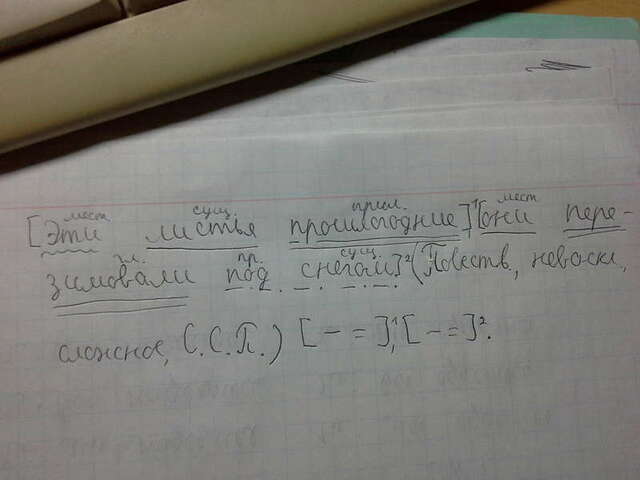 мест. сущ. прил. мест
[Эти листья прошлогодние]¹[они пере-
гл. пр. сущ.
зимовали под снегом]² (Повеств, невоскл,
сложное, С.С.П.) [— =]¹, [— =]².